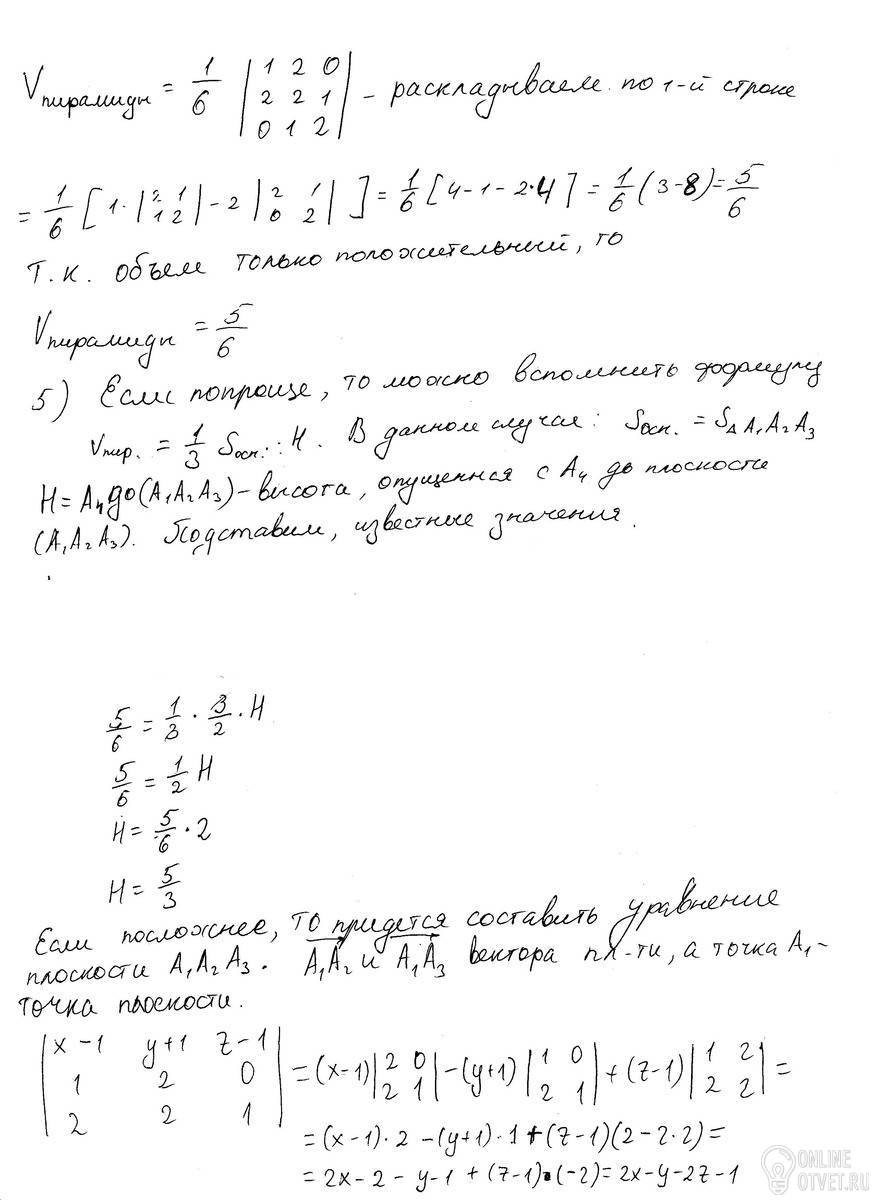 Vпирамиды = 1/6 |1 2 0; 2 2 1; 0 1 2| – раскладываем по 1-й строке
= 1/6 [1·|2 1; 1 2| – 2 |2 1; 0 2|] = 1/6 [4-1-2·4] = 1/6 (3-8) = 5/6
Т.к. объем только положительный, то
Vпирамиды = 5/6
5) Если попроще, то можно вспомнить формулу
Vпир. = 1/3 Sосн. · H. В данном случае: Sосн. = S△A₁A₂A₃
H = A₄ до (A₁A₂A₃) – высота, опущенная с A₄ до плоскости
(A₁A₂A₃). Подставим, известные значения.
5/6 = 1/3 · 3/2 · H
5/6 = 1/2 H
H = 5/6 · 2
H = 5/3
Если посложнее, то придется составить уравнение
плоскости A₁A₂A₃. A₁A₂ и A₁A₃ вектора пл-ти, а точка A₁ –
точка плоскости.
|x-1 y+1 z-1; 1 2 0; 2 2 1| = (x-1)|2 0; 2 1| – (y+1)|1 0; 2 1| + (z-1)|1 2; 2 2| =
= (x-1)·2 – (y+1)·1 + (z-1)(2-2·2) =
= 2x-2-y-1+(z-1)·(-2) = 2x-y-2z-1
ONLINE
OTVET.RU